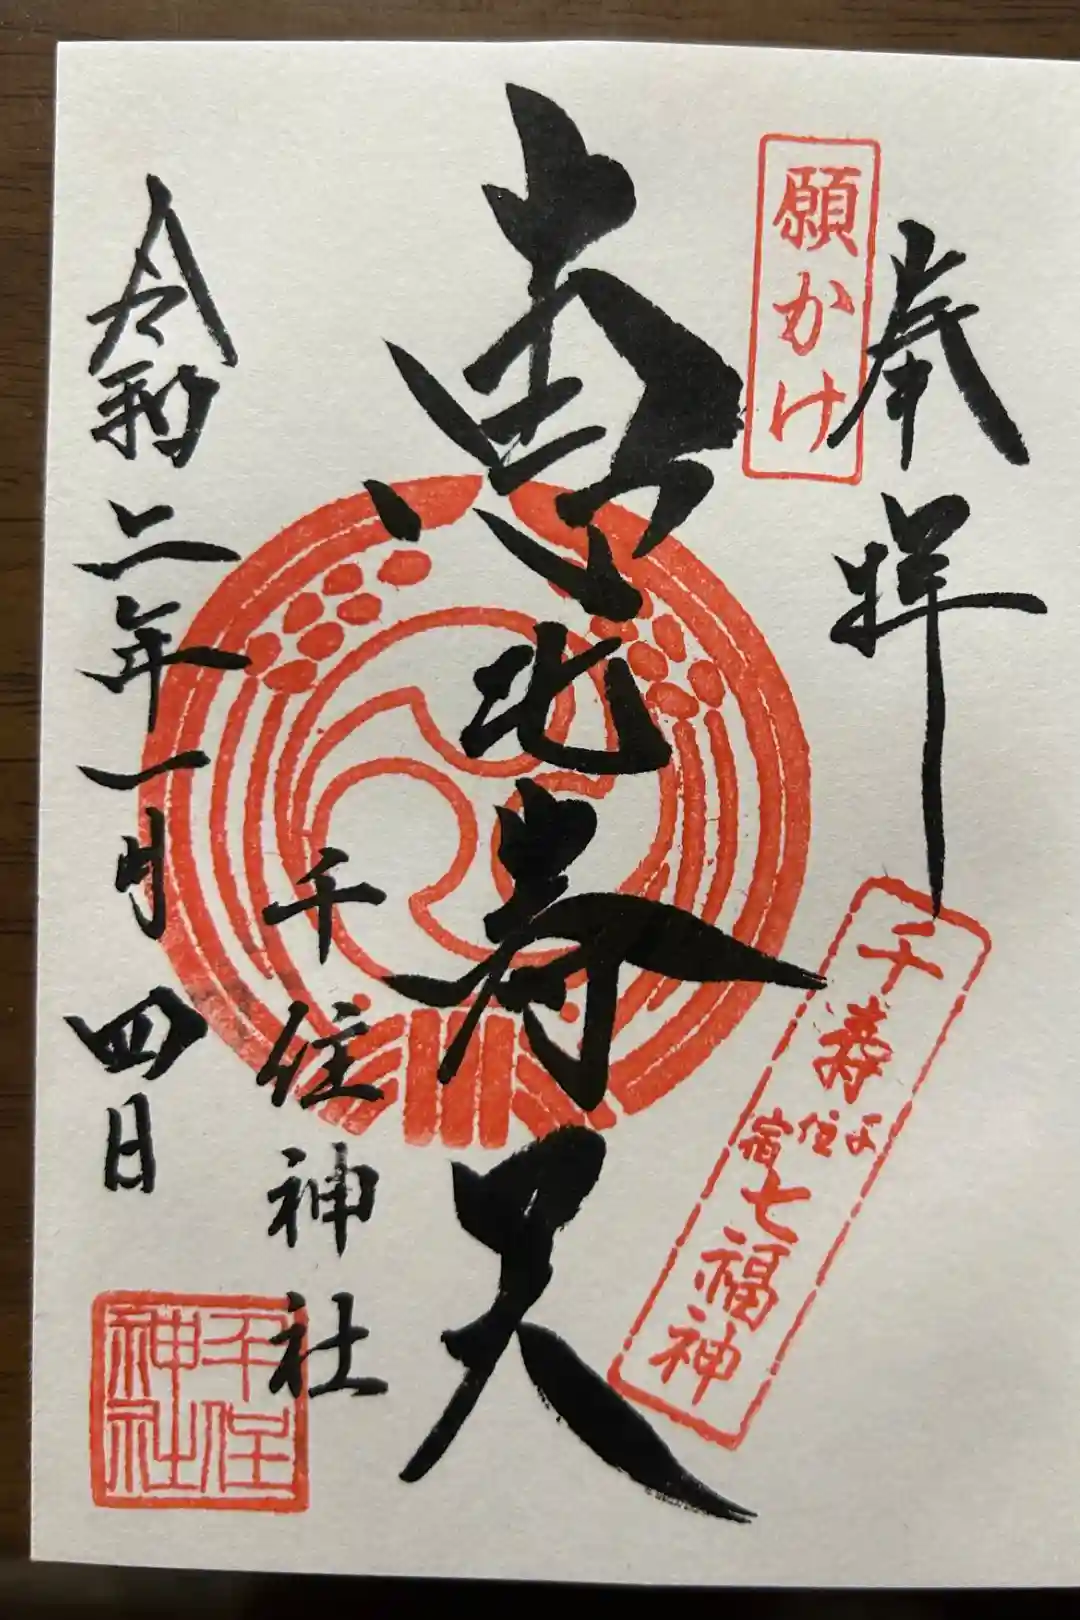 奉拝
願かけ
千寿
住よ
宿
七福神
恵比寿天
千住神社
令和二年一月四日
千住
神社